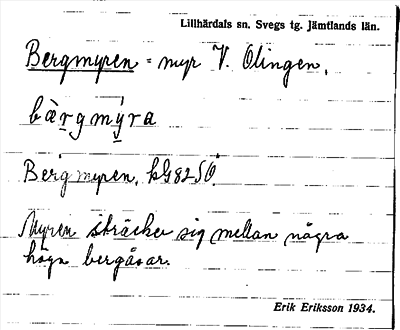 Lillhärdals sn. Svegs tg. Jämtlands län.
Bergmyren = myr V. Olingen.
bàrgmýra
Bergmyren, kG8250.
Myren sträcker sig mellan några
höga bergåsar.
Erik Eriksson 1934.